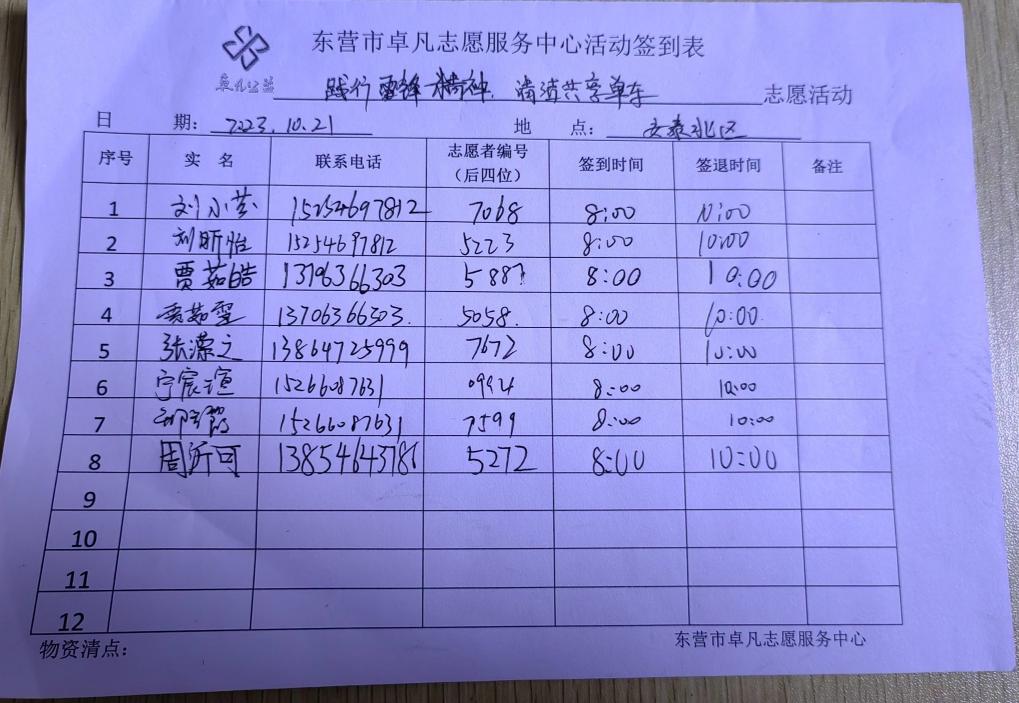 东营市卓凡志愿服务中心活动签到表
卓凡公益
践行雷锋精神. 清洁共享单车 志愿活动
日 期: 2023.10.21 地 点: 安泰北区
序号 实 名 联系电话 志愿者编号(后四位) 签到时间 签退时间 备注
1 刘小芸 15254697812 7068 8:00 10:00
2 刘昕怡 15254697812 5223 8:00 10:00
3 贾茹皓 13706366303 5887 8:00 10:00
4 贾茹雯 13706366303. 5058. 8:00 10:00.
5 张濛之 13864725999 7672 8:00 10:00
6 宁宸瑄 15266087631 0994 8:00 10:00
7 15266087631 7599 8:00 10:00
8 周沂可 13854643786 5272 8:00 10:00
9
10
11
12
物资清点: 东营市卓凡志愿服务中心